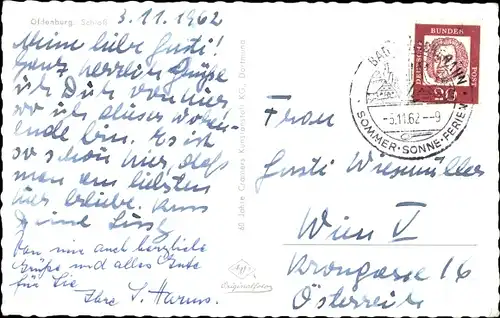 Oldenburg. Schloß
3.11.1962
Meine liebe Gusti!
Ganz herzliche Grüße
Dir von hier,
wo ich dieses Wochen-
ende bin. Es ist
so schön hier, daß
man am liebsten
hier bliebe.
Deine
Von mir auch herzliche
Grüße und alles Gute
für Sie
Ihre S. Harms.
60 Jahre Cramers Kunstanstalt KG., Dortmund
Originalfoto
DEUTSCHE
BUNDES
POST
20
BAD
-5.11.62.--9
SOMMER·SONNE·FERIEN
Frau
Gusti Wiesmüller
Wien V
Krongasse 16
Österreich